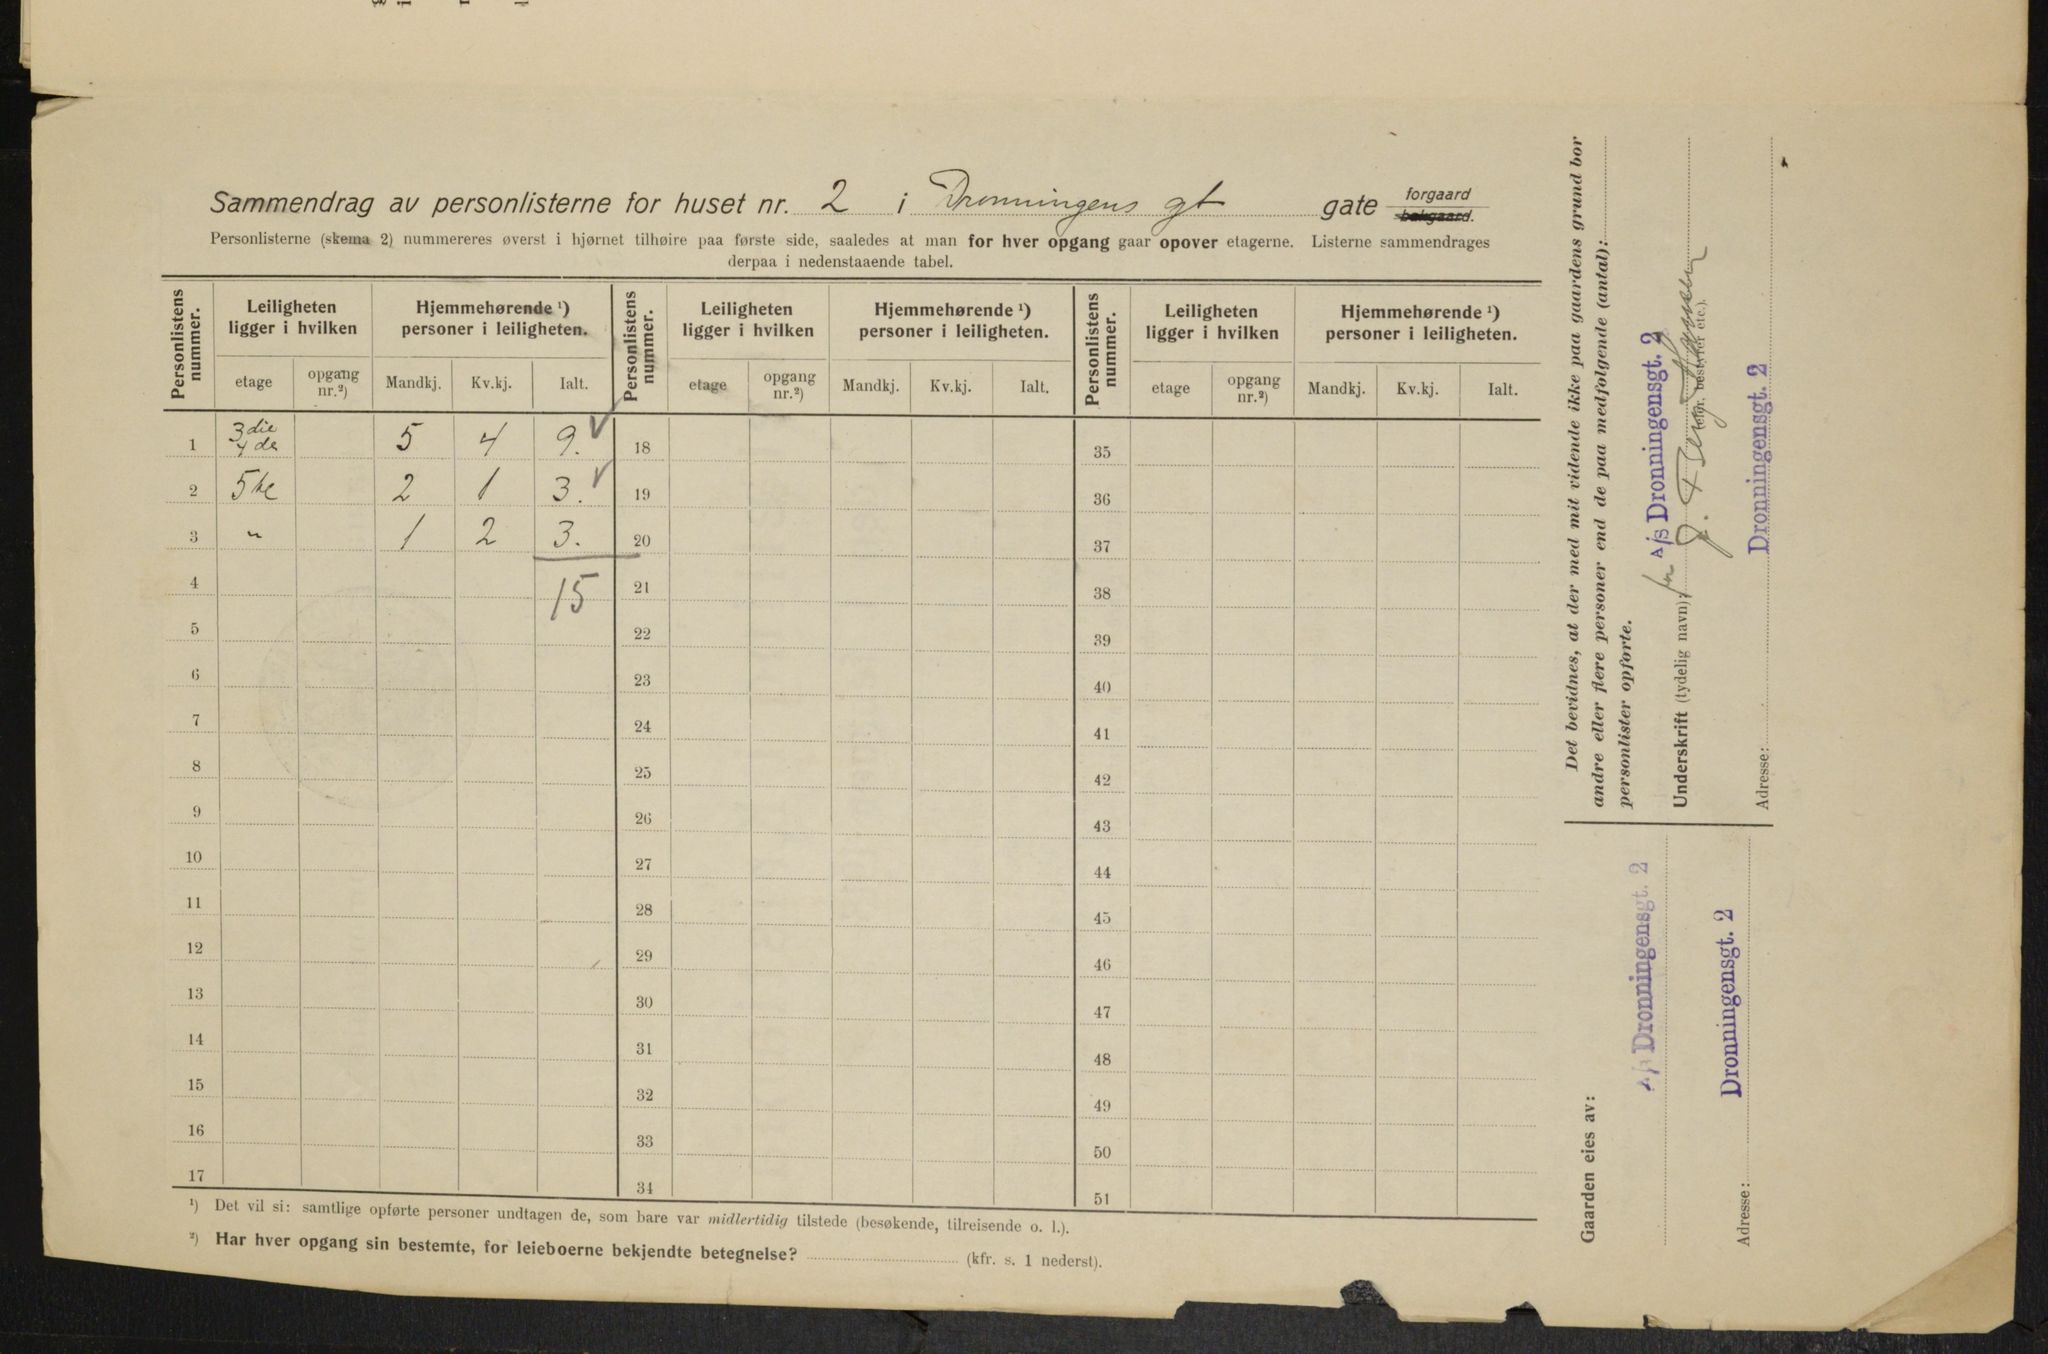 Sammendrag av personlisterne for huset nr. 2 i Dronningens gt gate forgaard bakgaard.
Personlisterne (skema 2) nummereres øverst i hjørnet tilhøire paa første side, saaledes at man for hver opgang gaar opover etagerne. Listerne sammendrages
derpaa i nedenstaaende tabel.
Personlistens nummer. Leiligheten ligger i hvilken Hjemmehørende ¹) personer i leiligheten. Personlistens nummer. Leiligheten ligger i hvilken Hjemmehørende ¹) personer i leiligheten. Personlistens nummer. Leiligheten ligger i hvilken Hjemmehørende ¹) personer i leiligheten.
etage opgang nr.²) Mandkj. Kv.kj. Ialt. etage opgang nr.²) Mandkj. Kv.kj. Ialt. etage opgang nr.²) Mandkj. Kv.kj. Ialt.
1 3die 4de 5 4 9. 18 35
2 5te 2 1 3. 19 36
3 " 1 2 3. 20 37
4 15 21 38
5 22 39
6 23 40
7 24 41
8 25 42
9 26 43
10 27 44
11 28 45
12 29 46
13 30 47
14 31 48
15 32 49
16 33 50
17 34 51
¹) Det vil si: samtlige opførte personer undtagen de, som bare var midlertidig tilstede (besøkende, tilreisende o. l.).
²) Har hver opgang sin bestemte, for leieboerne bekjendte betegnelse? (kfr. s. 1 nederst).
Det bevidnes, at der med mit vidende ikke paa gaardens grund bor
andre eller flere personer end de paa medfolgende (antal):
personlister opførte.
for A/S Dronningensgt. 2
Underskrift (tydelig navn): J.
bestyrer etc.).
Dronningensgt. 2
Adresse:
Gaarden eies av:
A/S Dronningensgt. 2
Dronningensgt. 2
Adresse: